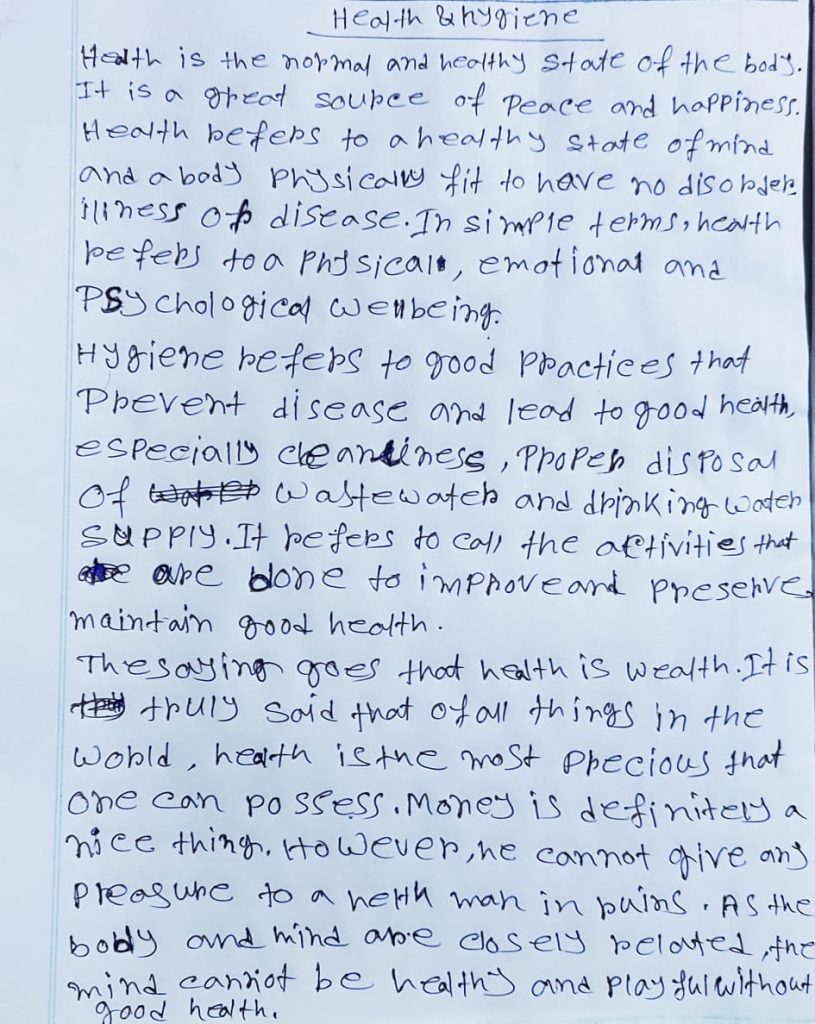 Health & hygiene
Health is the normal and healthy state of the body.
It is a great source of peace and happiness.
Health refers to a healthy state of mind
and a body physically fit to have no disorder
illness or disease. In simple terms, health
refers to a physical, emotional and
Psychological wellbeing.
Hygiene refers to good practices that
Prevent disease and lead to good health,
especially cleanliness, proper disposal
of wastewater and drinking water
supply. It refers to call the activities that
are done to improve and preserve
maintain good health.
The saying goes that health is wealth. It is
truly said that of all things in the
world, health is the most precious that
one can possess. Money is definitely a
nice thing. However, he cannot give any
pleasure to a man in ruins. As the
body and mind are closely related, the
mind cannot be healthy and playful without
good health.